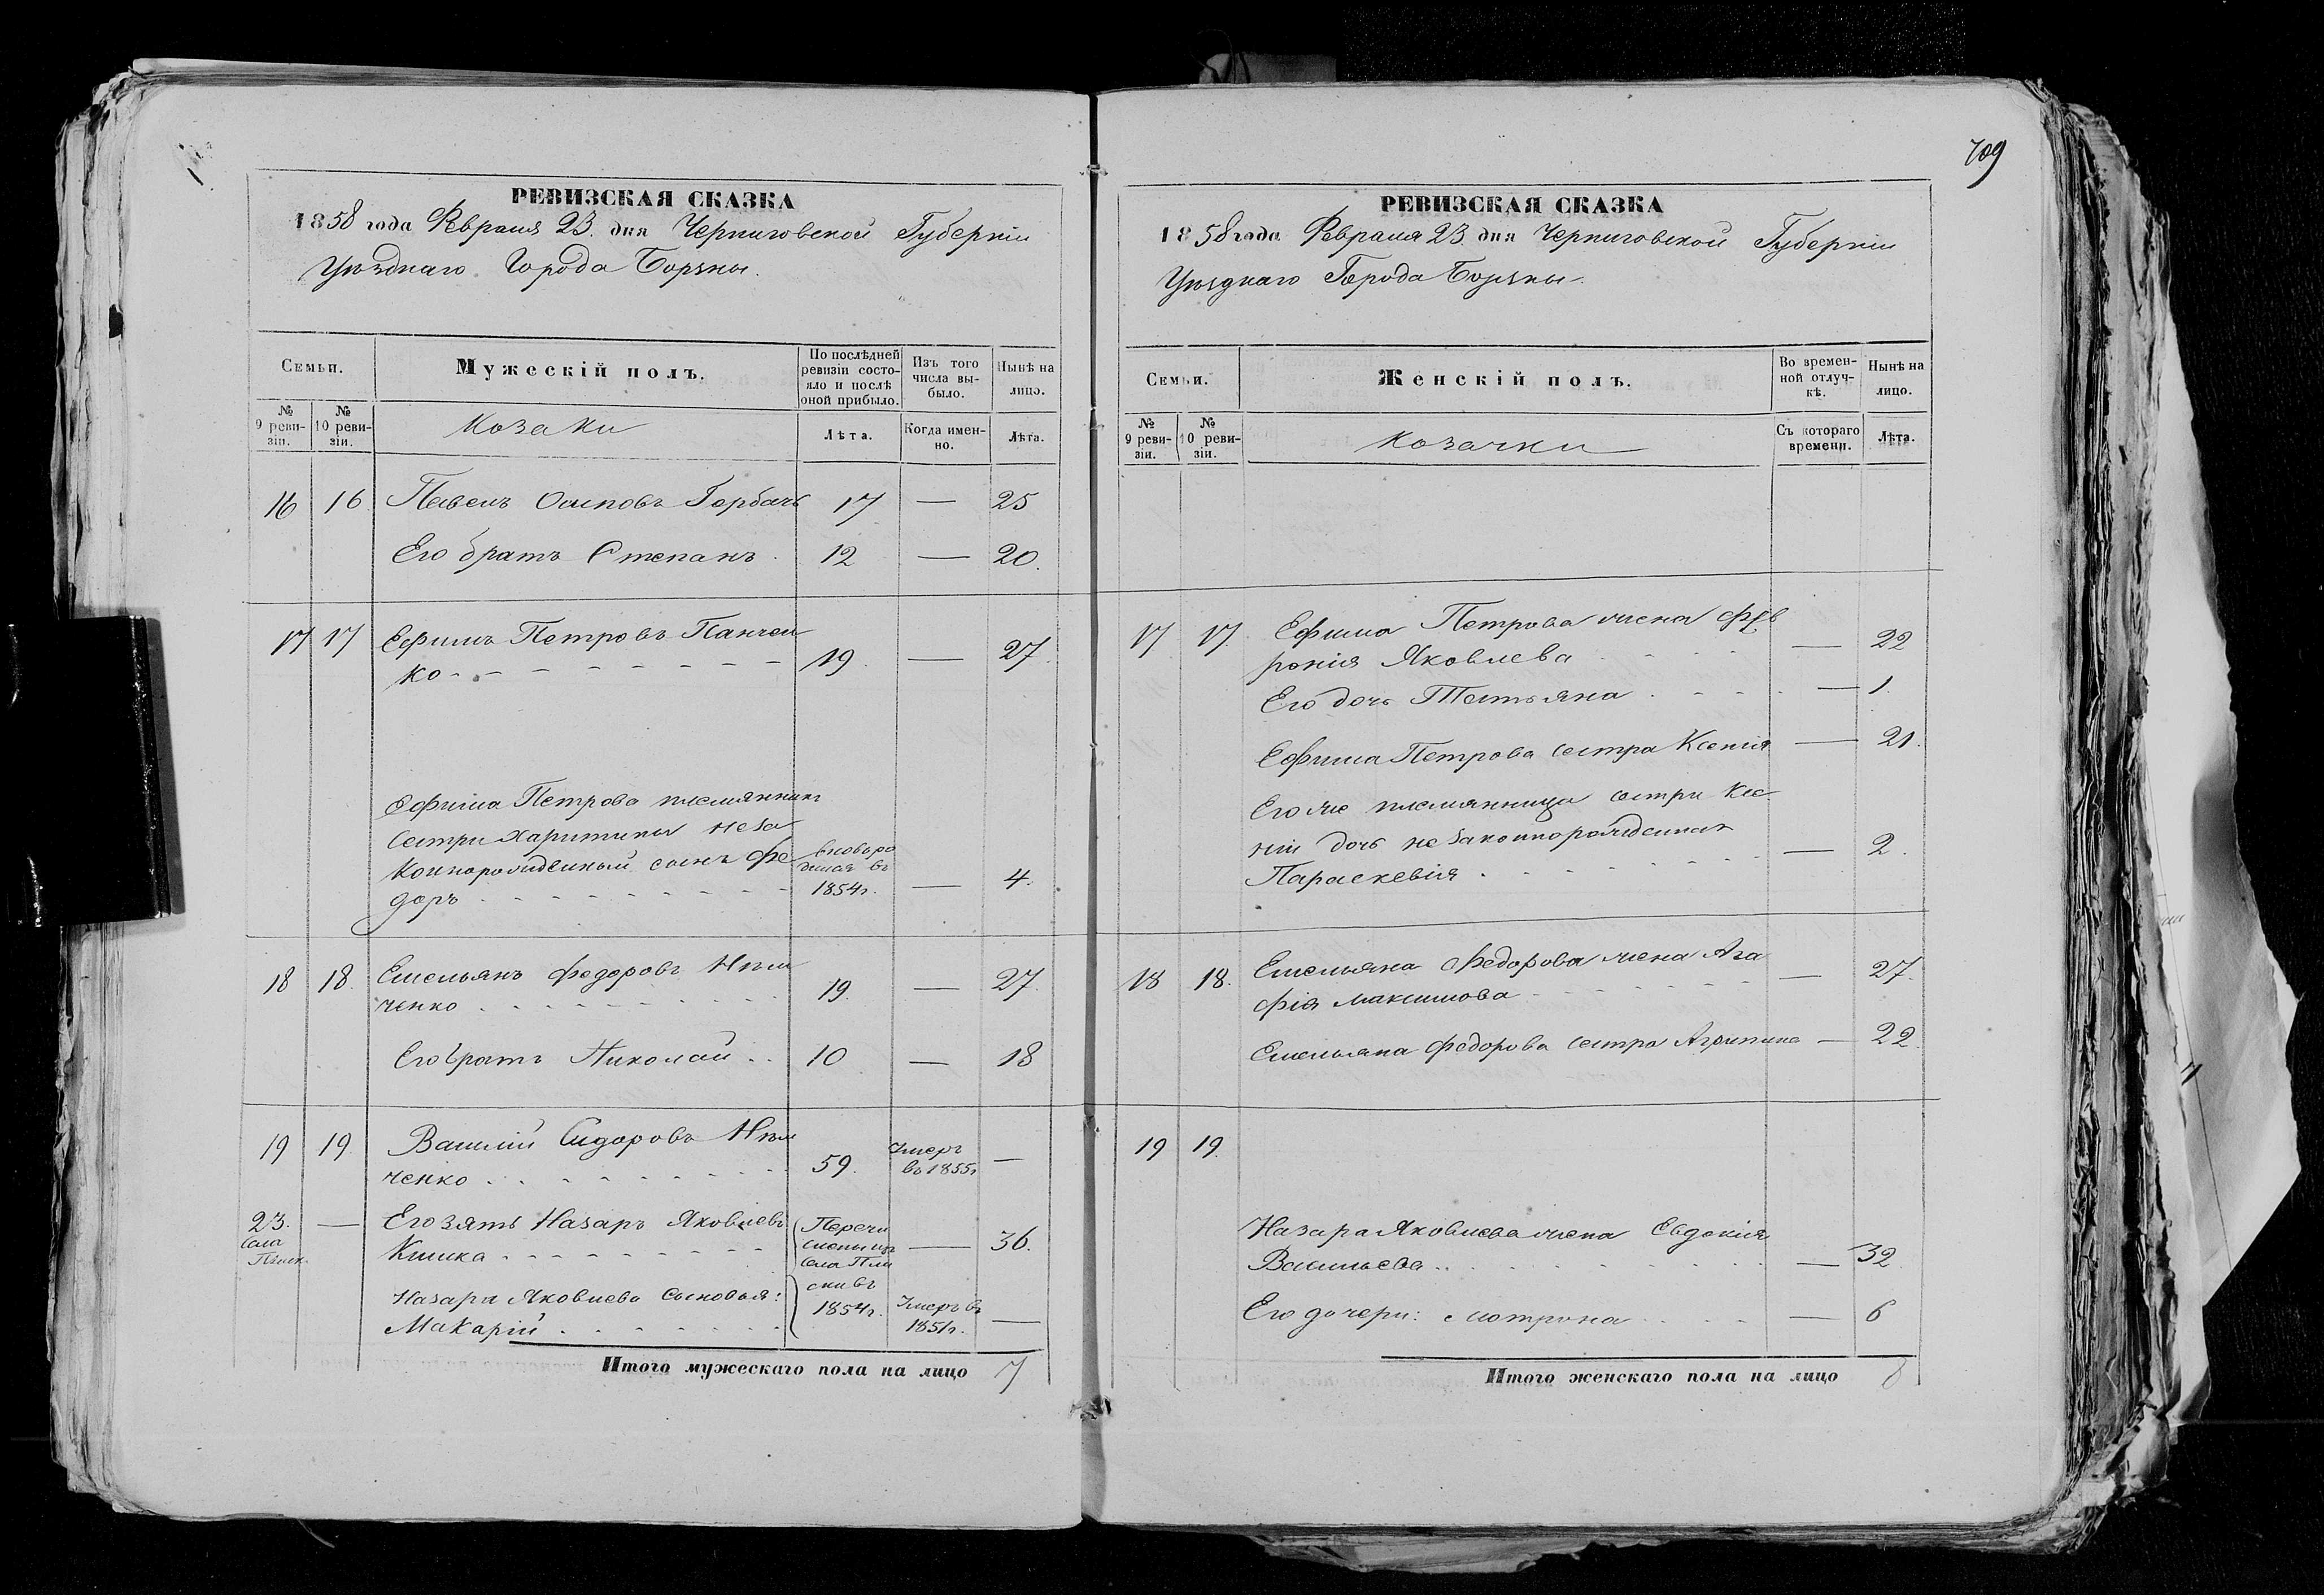 РЕВИЗСКАЯ СКАЗКА
1858 года Февраля 23. дня Черниговской Губерніи
Уѣзднаго Города Борзны.
Семьи.
Мужескій полъ.
По послѣдней ревизіи состояло и послѣ оной прибыло.
Изъ того числа выбыло.
Нынѣ на лицо.
№ 9 ревизіи.
№ 10 ревизіи.
Козаки
Лѣта.
Когда именно.
Лѣта.
16 16 Павелъ Осиповъ Горбачъ 17 — 25
Его братъ Степанъ. 12 — 20.
17 17 Ефимъ Петровъ Панчен
ко 19. — 27.
Ефима Петрова племянникъ
сестри Харитины неза
коннорожденный сынъ Фе
доръ
вновь ро
1854г. — 4.
18 18. Емельянъ Федоровъ Нѣм
ченко 19. — 27.
Его братъ Николай 10 — 18
19 19 Василій Сидоровъ Нѣм
ченко 59. Умеръ въ 1855г —
23. Села —
Его зять Назаръ Яковлевъ
Кишка — 36.
Перечи
сленъ изъ
села Пли
ски въ
1854г.
Назара Яковлева сыновья:
Макарій Умеръ въ 1851г. —
Итого мужескаго пола на лицо 7
709
РЕВИЗСКАЯ СКАЗКА
1858 года Февраля 23 дня Черниговской Губерніи
Уѣзднаго Города Борзны.
Семьи.
Женскій полъ.
Во временной отлучкѣ.
Нынѣ на лицо.
№ 9 ревизіи.
№ 10 ревизіи.
Козачки
Съ котораго времени.
Лѣта.
17 17. Ефима Петрова жена Фев
ронія Яковлева — 22
Его дочь Татьяна — 1.
Ефима Петрова сестра Ксенія — 21.
Его же племянница сестри Ксе
ніи дочь незаконнорожденная
Параскевія — 2.
18 18. Емельяна Федорова жена Ага
фія Максимова — 27.
Емельяна Федорова сестра Агрипина — 22
19 19.
Назара Яковлева жена Евдокія
Васильева — 32.
Его дочери: Мотрона — 6
Итого женскаго пола на лицо 8